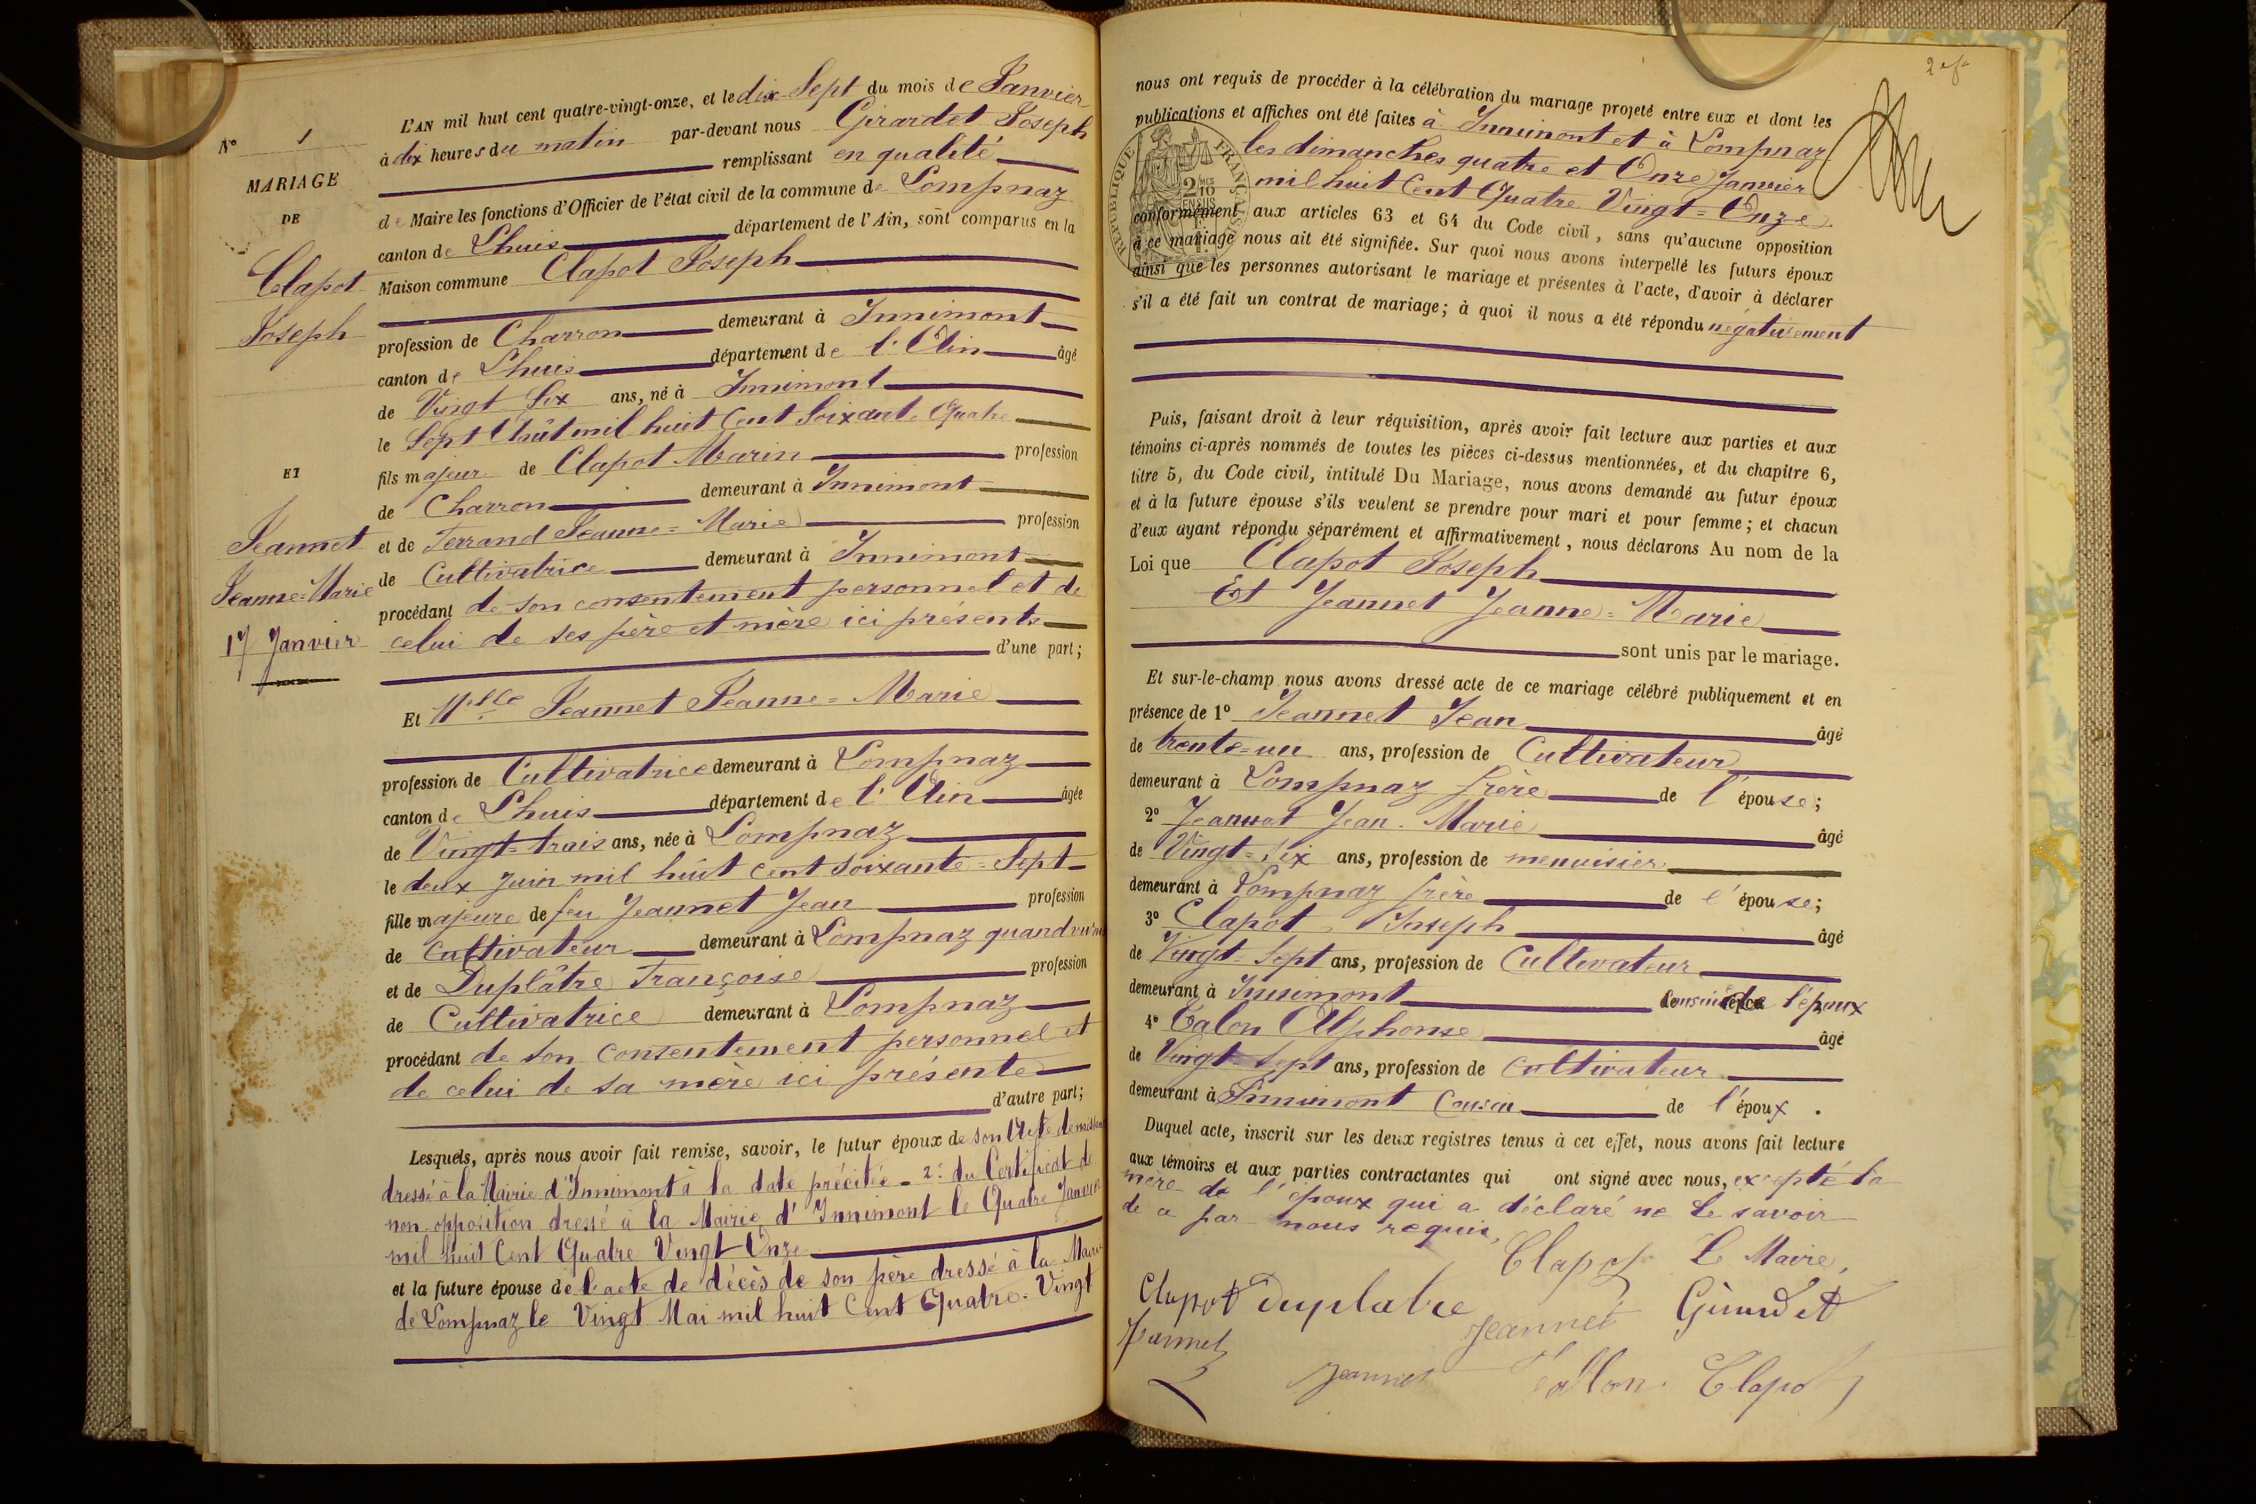 N° 1
MARIAGE
DE
Clapot
Joseph
ET
Jeannet
Jeanne=Marie
17 Janvier
L'AN mil huit cent quatre-vingt-onze, et le dix Sept du mois de Janvier
à dix heures du matin par-devant nous Girardet Joseph
remplissant en qualité
de Maire les fonctions d'Officier de l'état civil de la commune de Lompnaz
canton de Lhuis département de l'Ain, sont comparus en la
Maison commune Clapot Joseph
profession de Charron demeurant à Innimont
canton de Lhuis département de l'Ain âgé
de Vingt Six ans, né à Innimont
le Sept Août mil huit Cent Soixante Quatre
fils majeur de Clapot Marin profession
de Charron demeurant à Innimont
et de Ferrand Jeanne=Marie profession
de Cultivatrice demeurant à Innimont
procédant de son consentement personnel et de
celui de ses père et mère ici présents
d'une part;
Et Mlle Jeannet Jeanne=Marie
profession de Cultivatrice demeurant à Lompnaz
canton de Lhuis département de l'Ain âgée
de Vingt=trois ans, née à Lompnaz
le deux Juin mil huit cent soixante=Sept
fille majeure de feu Jeannet Jean profession
de Cultivateur demeurant à Lompnaz quand vivait
et de Duplâtre Françoise profession
de Cultivatrice demeurant à Lompnaz
procédant de son consentement personnel et
de celui de sa mère ici présente
d'autre part;
Lesquels, après nous avoir fait remise, savoir, le futur époux de son Acte de naissance
dressé à la Mairie d'Innimont à la date précitée - 2° du Certificat de
non opposition dressé à la Mairie d'Innimont le Quatre Janvier
mil huit Cent Quatre Vingt Onze
et la future épouse de l'acte de décès de son père dressé à la Mairie
de Lompnaz le Vingt Mai mil huit Cent Quatre=Vingt
nous ont requis de procéder à la célébration du mariage projeté entre eux et dont les
publications et affiches ont été faites à Innimont et à Lompnaz
les dimanches quatre et Onze Janvier
mil huit Cent Quatre Vingt=Onze
conformément aux articles 63 et 64 du Code civil, sans qu'aucune opposition
à ce mariage nous ait été signifiée. Sur quoi nous avons interpellé les futurs époux
ainsi que les personnes autorisant le mariage et présentes à l'acte, d'avoir à déclarer
s'il a été fait un contrat de mariage; à quoi il nous a été répondu négativement
Puis, faisant droit à leur réquisition, après avoir fait lecture aux parties et aux
témoins ci-après nommés de toutes les pièces ci-dessus mentionnées, et du chapitre 6,
titre 5, du Code civil, intitulé Du Mariage, nous avons demandé au futur époux
et à la future épouse s'ils veulent se prendre pour mari et pour femme; et chacun
d'eux ayant répondu séparément et affirmativement, nous déclarons Au nom de la
Loi que Clapot Joseph
Et Jeannet Jeanne=Marie
sont unis par le mariage.
Et sur-le-champ nous avons dressé acte de ce mariage célébré publiquement et en
présence de 1° Jeannet Jean âgé
de trente=un ans, profession de Cultivateur
demeurant à Lompnaz frère de l'épouse;
2° Jeannet Jean-Marie âgé
de Vingt=Six ans, profession de menuisier
demeurant à Lompnaz frère de l'épouse;
3° Clapot Joseph âgé
de Vingt=Sept ans, profession de Cultivateur
demeurant à Innimont cousin de l'époux
4° Talon Alphonse âgé
de Vingt=Sept ans, profession de Cultivateur
demeurant à Innimont Cousin de l'époux.
Duquel acte, inscrit sur les deux registres tenus à cet effet, nous avons fait lecture
aux témoins et aux parties contractantes qui ont signé avec nous, excepté la
mère de l'époux qui a déclaré ne le savoir
de ce par nous requis,
Clapot Le Maire,
Clapot Duplatre Jeannet Girardet
Jeannet
Jeannet Tallon Clapot